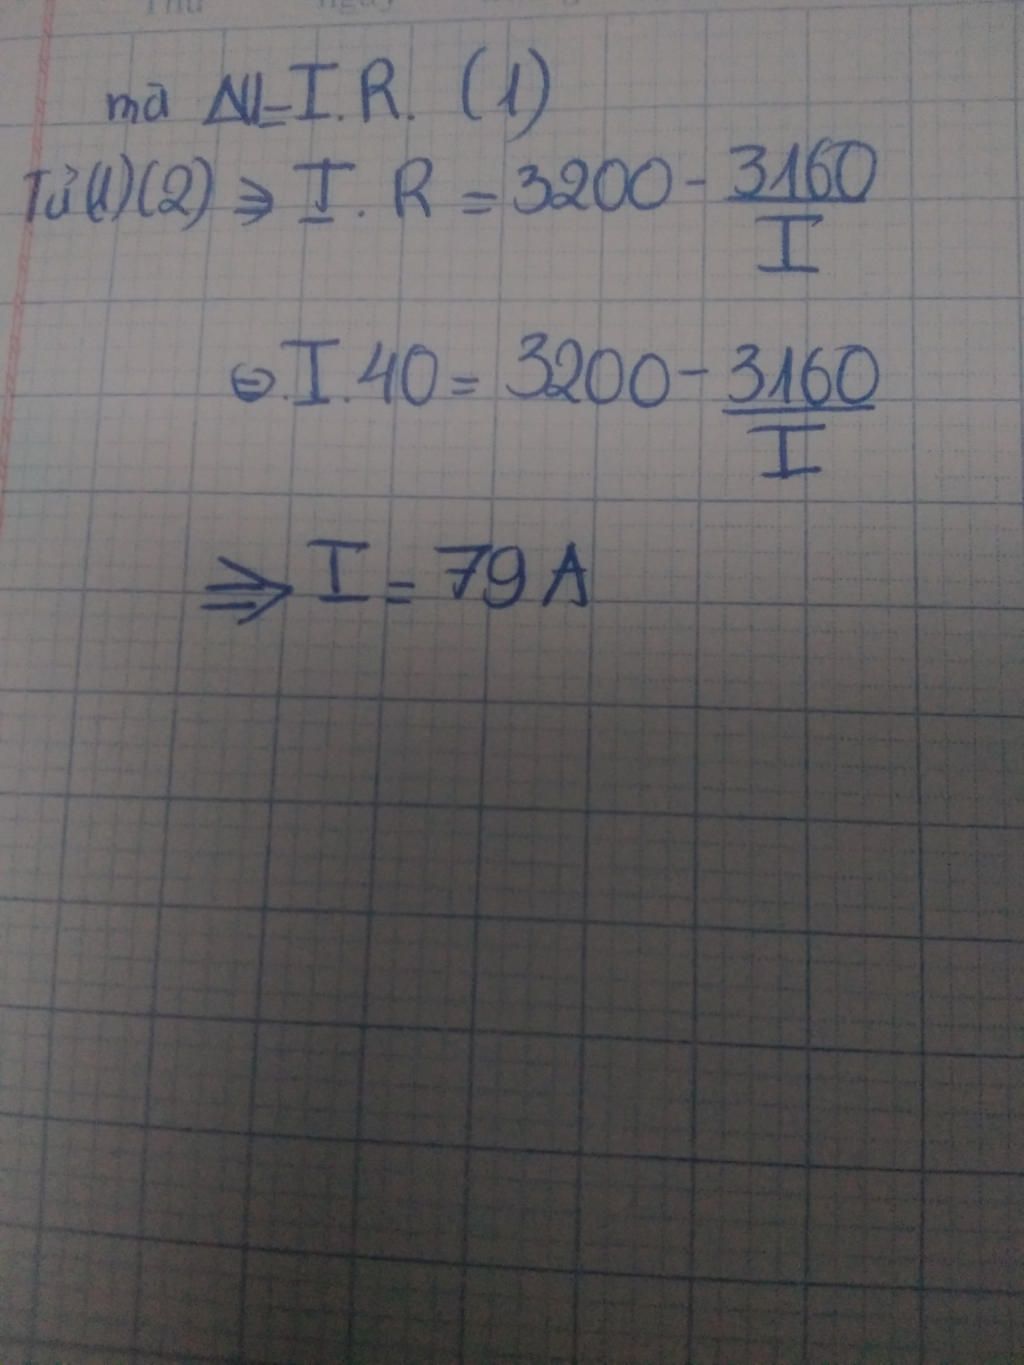 mà ΔU = I.R. (1)
Từ (1)(2) ⇒ I.R = 3200 - 3160/I
⇔ I.40 = 3200 - 3160/I
⇒ I = 79 A